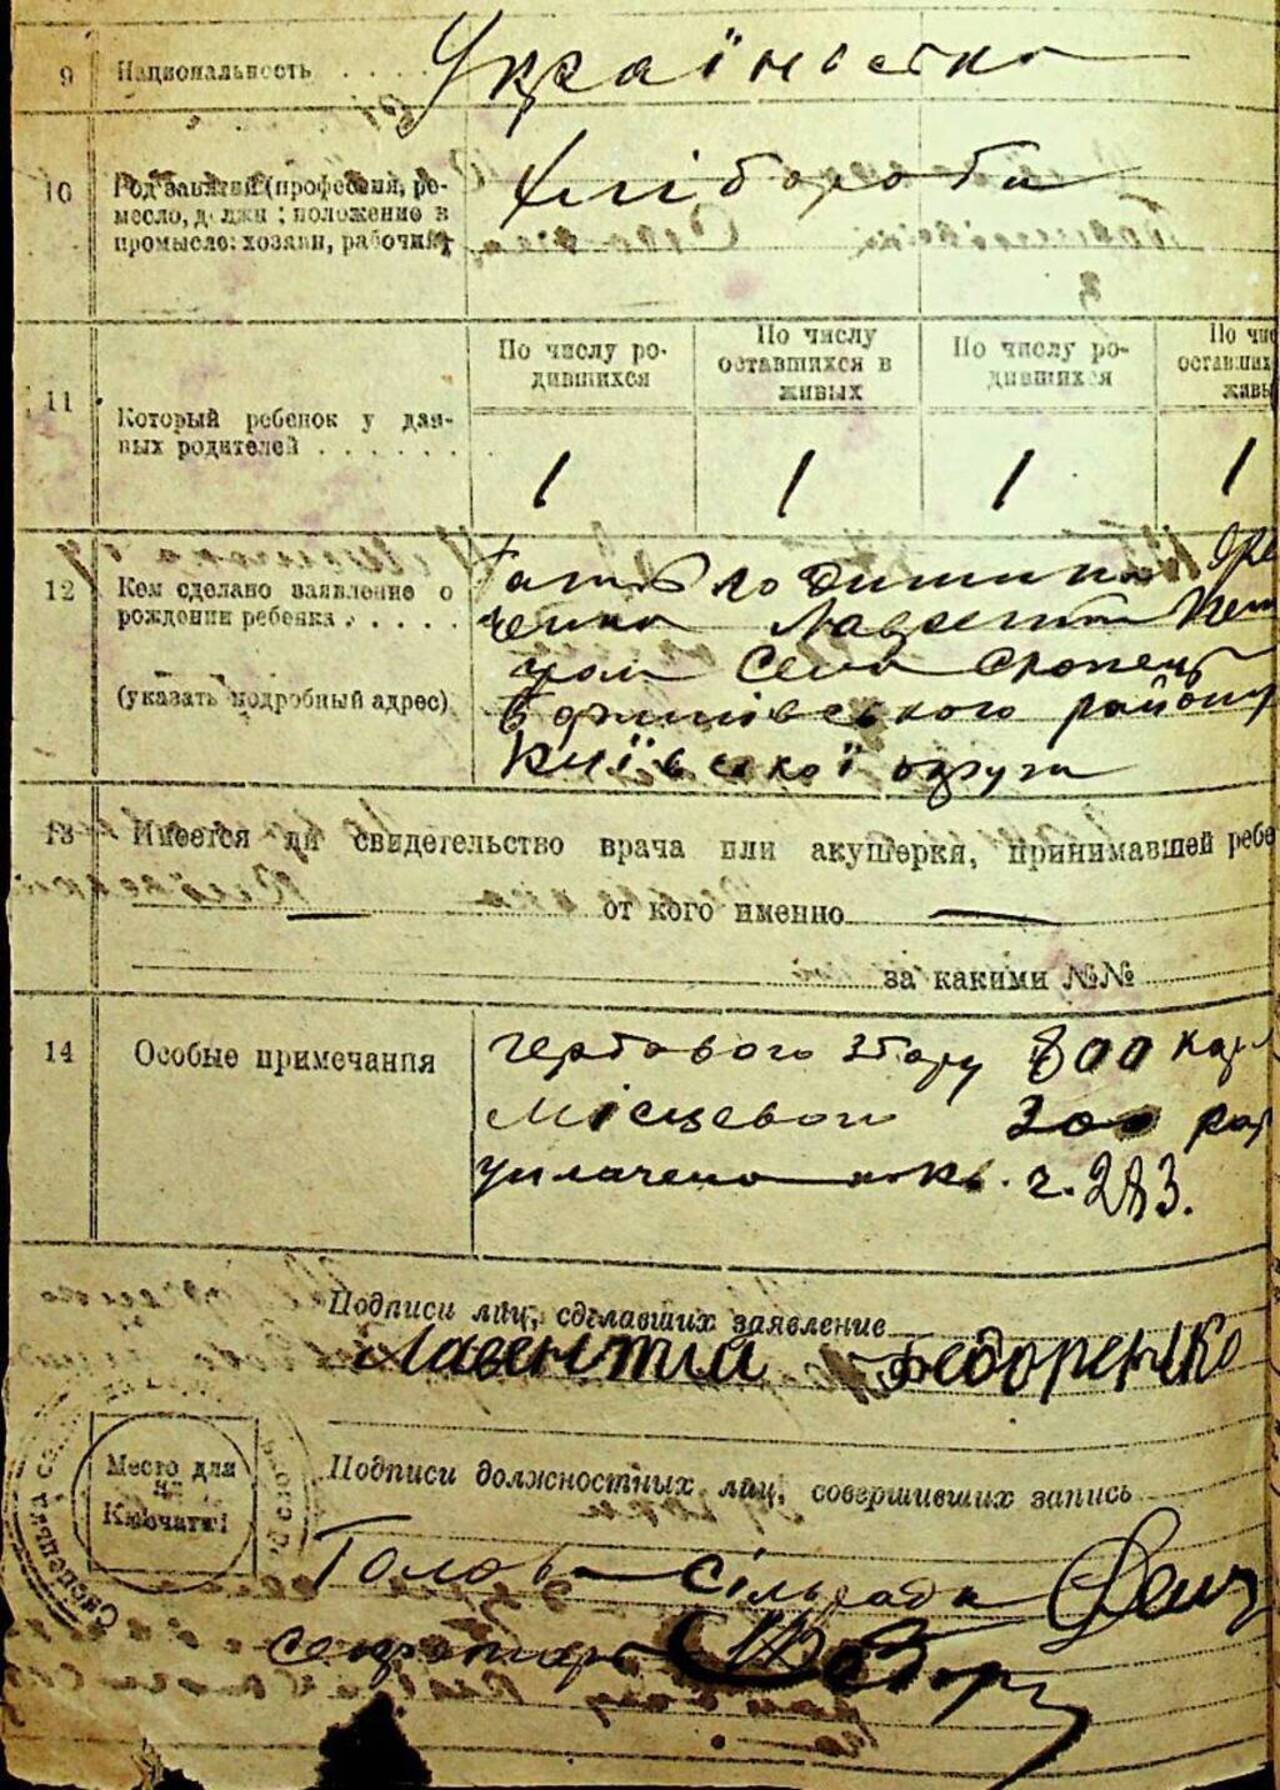 9 Национальность . . . . Українська
10 Род занятий (професия, ре-
месло, должн; положение в
промысле: хозяин, рабочий)
Хлібороби
11 Который ребенок у дан-
ных родителей . . . . . . .
По числу ро-
дившихся
По числу
оставшихся в
живых
По числу ро-
дившихся
По чис
оставших
живы
1 1 1 1
12 Кем сделано заявление о
рождении ребенка . . . . .
(указать подробный адрес)
села
району
Київської округи
13 Имеется ли свидетельство врача или акушерки, принимавшей ребе
— от кого именно —
за какими №№
14 Особые примечания
Гербового збору 800 кар
Місцевого 300 кар
уплачено по кв. ч. 283.
Подписи лиц, сделавших заявление
Лавентий Федоренко
Место для
Подписи должностных лиц, совершивших запись
Голова сільради
секретарь